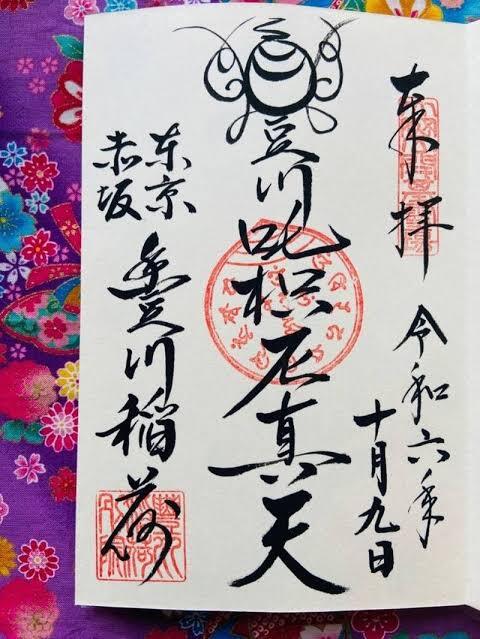 奉拝
令和六年
十月九日
豊川吒枳尼真天
東京
赤坂
豊川稲荷